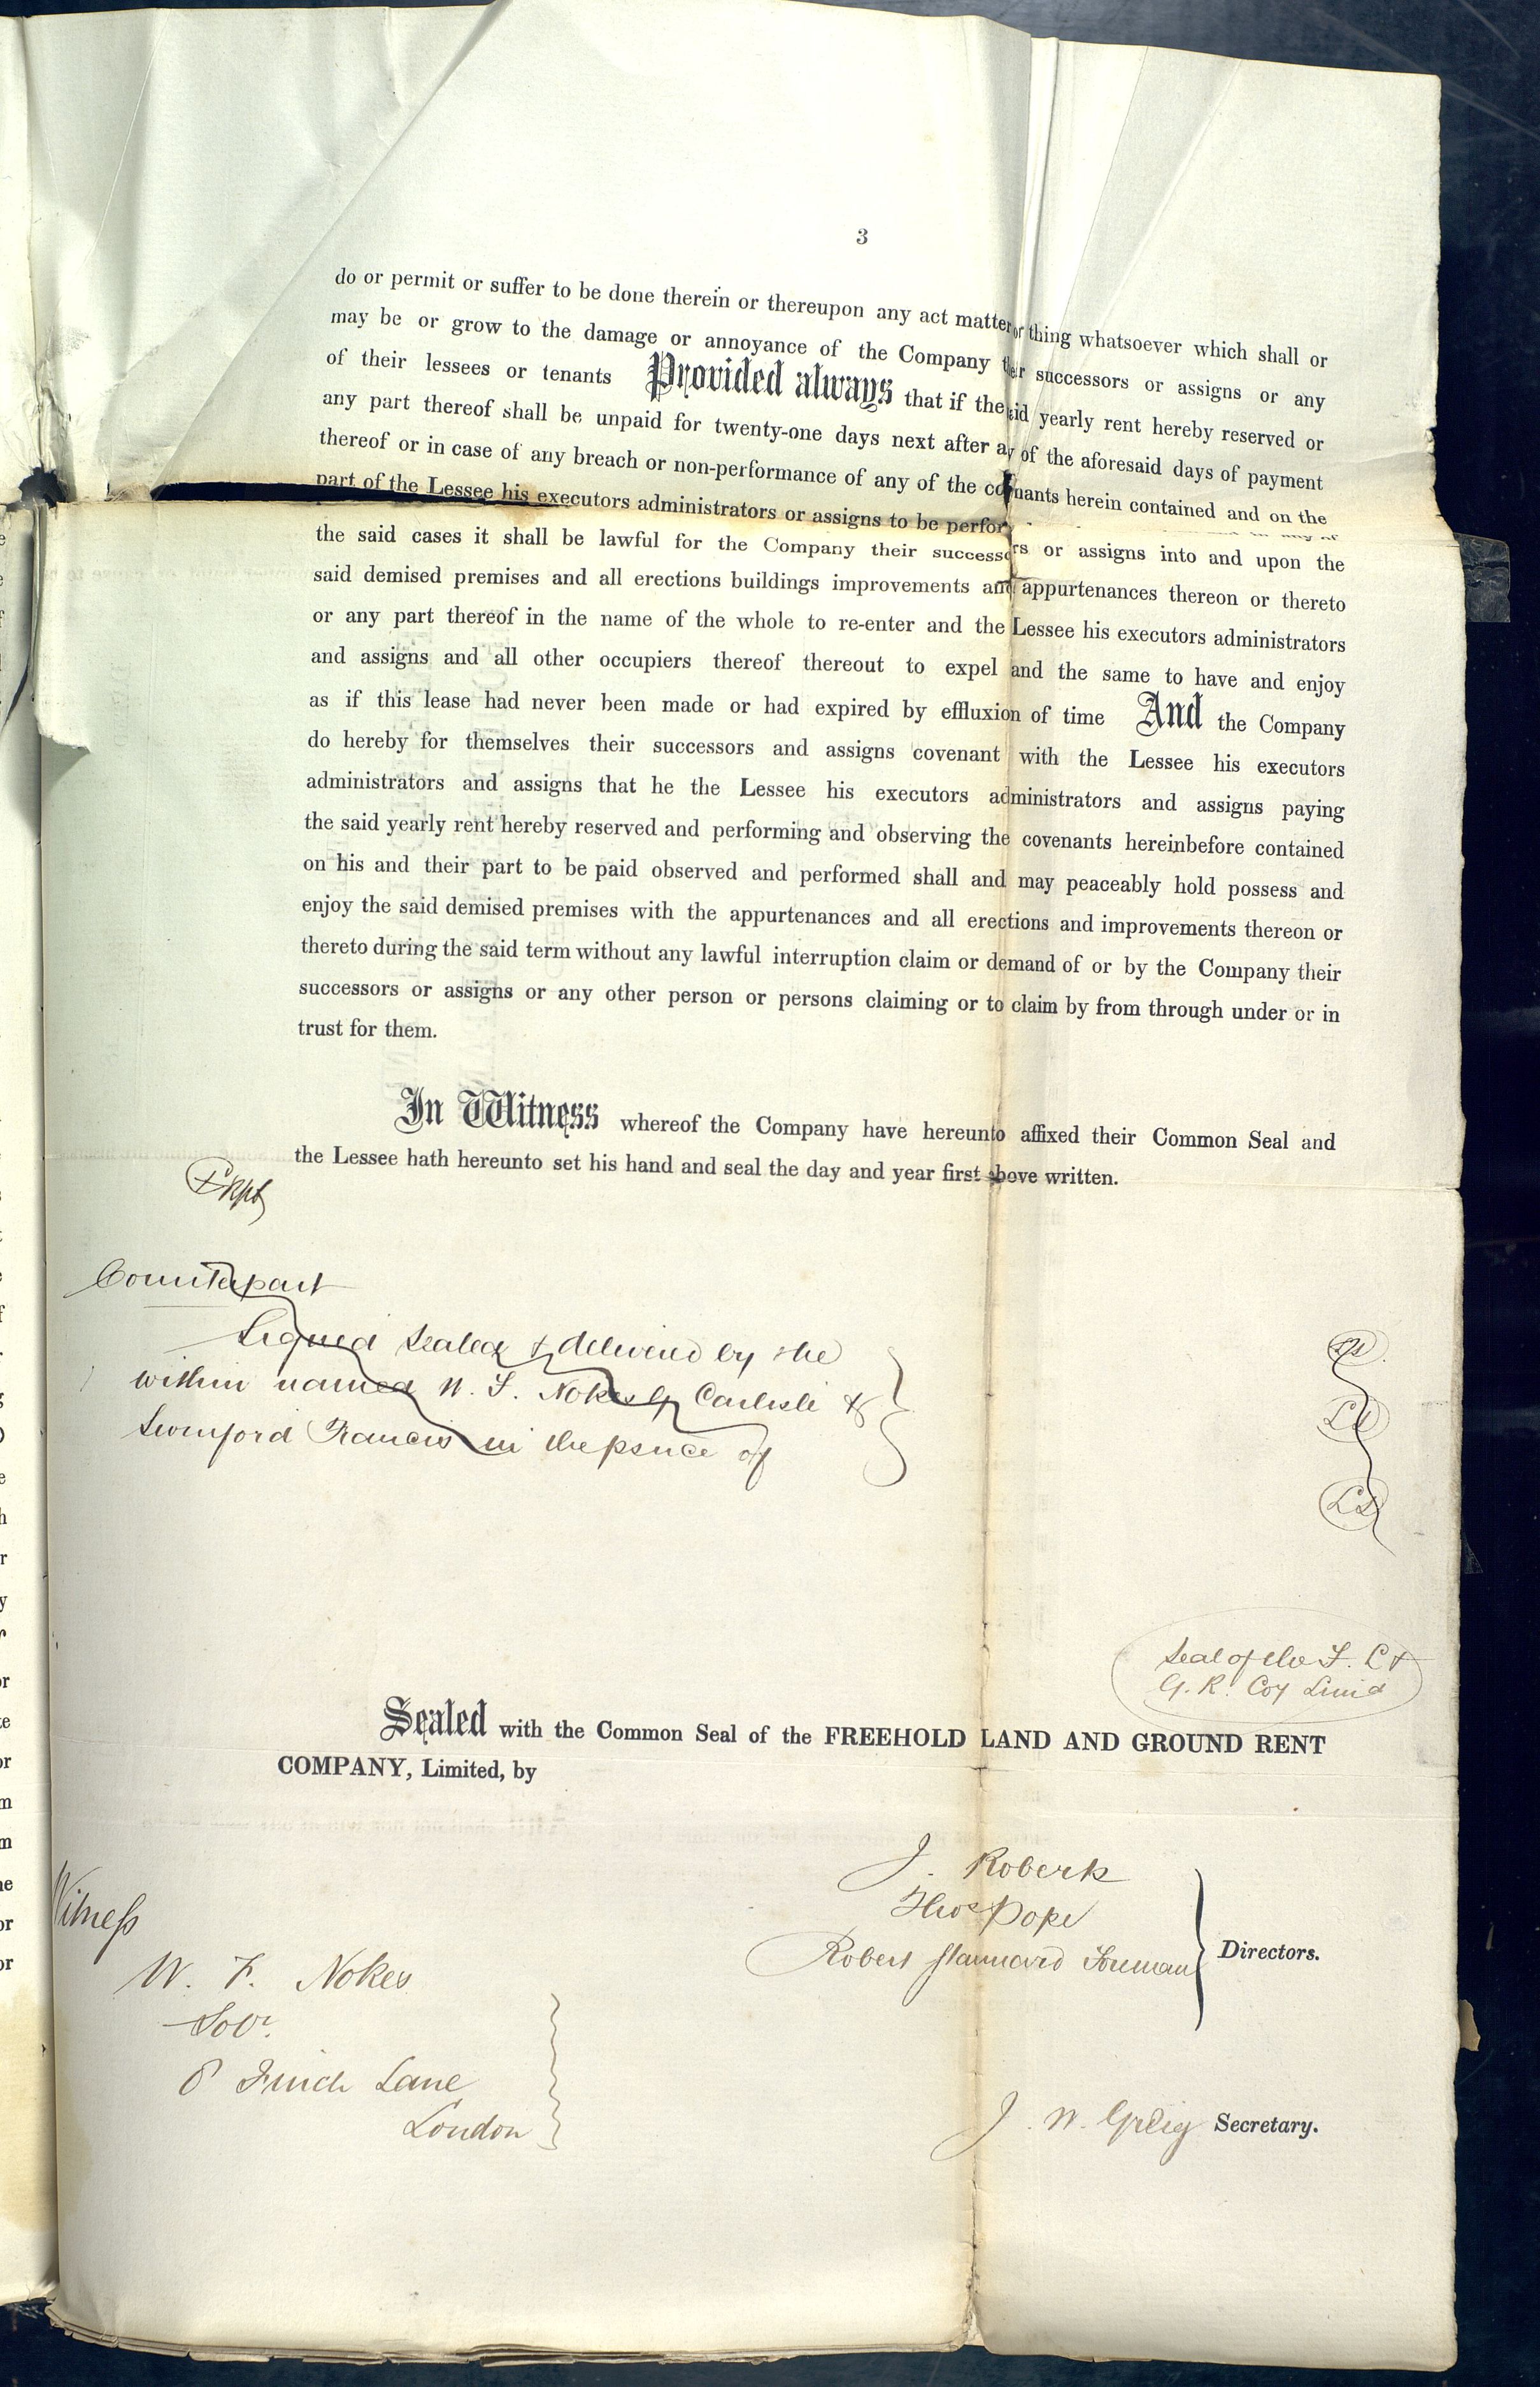 3
do or permit or suffer to be done therein or thereupon any act matter or thing whatsoever which shall or
may be or grow to the damage or annoyance of the Company their successors or assigns or any
of their lessees or tenants Provided always that if the said yearly rent hereby reserved or
any part thereof shall be unpaid for twenty-one days next after any of the aforesaid days of payment
thereof or in case of any breach or non-performance of any of the covenants herein contained and on the
part of the Lessee his executors administrators or assigns to be perfor
the said cases it shall be lawful for the Company their successors or assigns into and upon the
said demised premises and all erections buildings improvements and appurtenances thereon or thereto
or any part thereof in the name of the whole to re-enter and the Lessee his executors administrators
and assigns and all other occupiers thereof thereout to expel and the same to have and enjoy
as if this lease had never been made or had expired by effluxion of time And the Company
do hereby for themselves their successors and assigns covenant with the Lessee his executors
administrators and assigns that he the Lessee his executors administrators and assigns paying
the said yearly rent hereby reserved and performing and observing the covenants hereinbefore contained
on his and their part to be paid observed and performed shall and may peaceably hold possess and
enjoy the said demised premises with the appurtenances and all erections and improvements thereon or
thereto during the said term without any lawful interruption claim or demand of or by the Company their
successors or assigns or any other person or persons claiming or to claim by from through under or in
trust for them.
In Witness whereof the Company have hereunto affixed their Common Seal and
the Lessee hath hereunto set his hand and seal the day and year first above written.
Counterpart
Signed Sealed & delivered by the
within named W. F. Nokes G Carlisle &
Francis in the psnce of
LS
LS
LS
Seal of the F. L &
G. R. Coy Limd
Sealed with the Common Seal of the FREEHOLD LAND AND GROUND RENT
COMPANY, Limited, by
J. Roberts
Thos Pope
Robert Stannard Foreman
Directors.
Witness
W. F. Nokes
Solr.
8 Finch Lane
London
J. W. Greig Secretary.